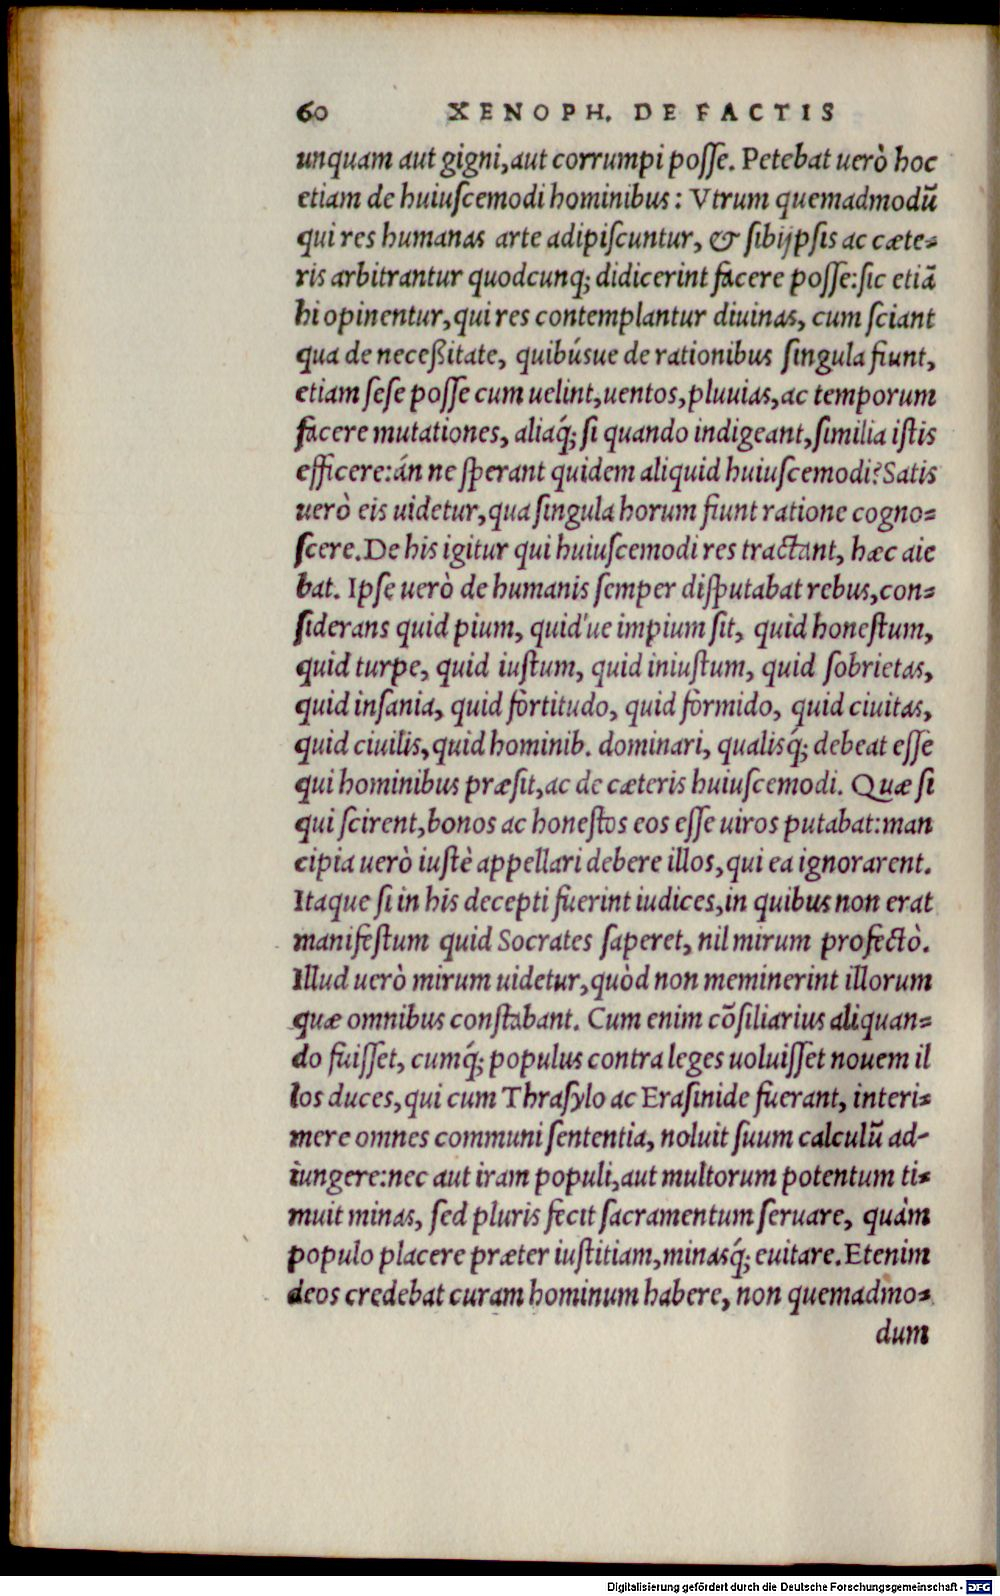 60 XENOPH. DE FACTIS
unquam aut gigni, aut corrumpi poſſe. Petebat uerò hoc
etiam de huiuſcemodi hominibus: Vtrum quemadmodũ
qui res humanas arte adipiſcuntur, & ſibijpſis ac cæte-
ris arbitrantur quodcunq; didicerint facere poſſe: ſic etiã
hi opinentur, qui res contemplantur diuinas, cum ſciant
qua de neceßitate, quibúsue de rationibus ſingula fiunt,
etiam ſeſe poſſe cum uelint, uentos, pluuias, ac temporum
facere mutationes, aliaq́; ſi quando indigeant, ſimilia iſtis
efficere: án ne ſperant quidem aliquid huiuſcemodi? Satis
uerò eis uidetur, qua ſingula horum fiunt ratione cogno-
ſcere. De his igitur qui huiuſcemodi res tractant, hæc aie
bat. Ipſe uerò de humanis ſemper diſputabat rebus, con-
ſiderans quid pium, quid'ue impium ſit, quid honeſtum,
quid turpe, quid iuſtum, quid iniuſtum, quid ſobrietas,
quid inſania, quid fortitudo, quid formido, quid ciuitas,
quid ciuilis, quid hominib. dominari, qualisq́; debeat eſſe
qui hominibus præſit, ac de cæteris huiuſcemodi. Quæ ſi
qui ſcirent, bonos ac honeſtos eos eſſe uiros putabat: man
cipia uerò iuſtè appellari debere illos, qui ea ignorarent.
Itaque ſi in his decepti fuerint iudices, in quibus non erat
manifeſtum quid Socrates ſaperet, nil mirum profectò.
Illud uerò mirum uidetur, quòd non meminerint illorum
quæ omnibus conſtabant. Cum enim cõſiliarius aliquan-
do fuiſſet, cumq́; populus contra leges uoluiſſet nouem il
los duces, qui cum Thraſylo ac Eraſinide fuerant, interi-
mere omnes communi ſententia, noluit ſuum calculũ ad-
iungere: nec aut iram populi, aut multorum potentum ti-
muit minas, ſed pluris fecit ſacramentum ſeruare, quàm
populo placere præter iuſtitiam, minasq́; euitare. Etenim
deos credebat curam hominum habere, non quemadmo-
dum
Digitalisierung gefördert durch die Deutsche Forschungsgemeinschaft - DFG